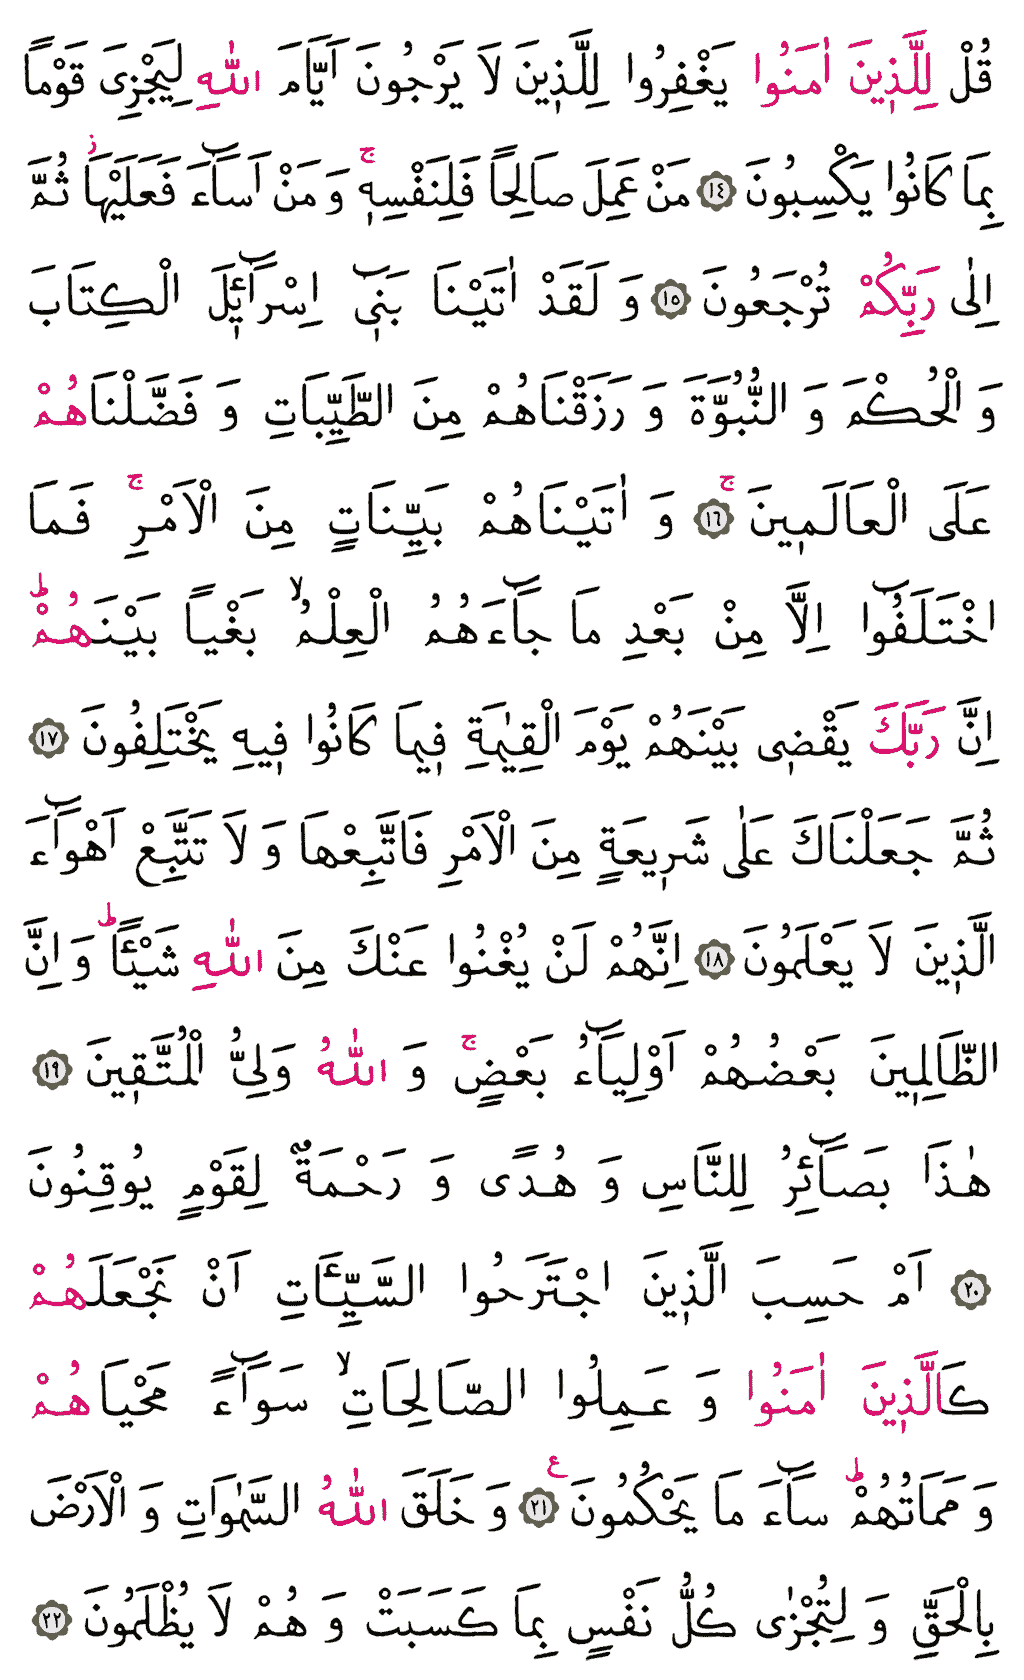 قُلْ لِلَّذٖينَ اٰمَنُوا يَغْفِرُوا لِلَّذٖينَ لَا يَرْجُونَ اَيَّامَ اللّٰهِ لِيَجْزِىَ قَوْماً
بِمَا كَانُوا يَكْسِبُونَ ١٤ مَنْ عَمِلَ صَالِحاً فَلِنَفْسِهٖۚ وَ مَنْ اَسَٓاءَ فَعَلَيْهَاۘ ثُمَّ
اِلٰى رَبِّكُمْ تُرْجَعُونَ ١٥ وَ لَقَدْ اٰتَيْنَا بَنٖٓى اِسْرَٓائٖلَ الْكِتَابَ
وَ الْحُكْمَ وَ النُّبُوَّةَ وَ رَزَقْنَاهُمْ مِنَ الطَّيِّبَاتِ وَ فَضَّلْنَاهُمْ
عَلَى الْعَالَمٖينَۚ ١٦ وَ اٰتَيْنَاهُمْ بَيِّنَاتٍ مِنَ الْاَمْرِۚ فَمَا
اخْتَلَفُٓوا اِلَّا مِنْ بَعْدِ مَا جَٓاءَهُمُ الْعِلْمُۙ بَغْياً بَيْنَهُمْؕ
اِنَّ رَبَّكَ يَقْضٖى بَيْنَهُمْ يَوْمَ الْقِيٰمَةِ فٖيمَا كَانُوا فٖيهِ يَخْتَلِفُونَ ١٧
ثُمَّ جَعَلْنَاكَ عَلٰى شَرٖيعَةٍ مِنَ الْاَمْرِ فَاتَّبِعْهَا وَ لَا تَتَّبِعْ اَهْوَٓاءَ
الَّذٖينَ لَا يَعْلَمُونَ ١٨ اِنَّهُمْ لَنْ يُغْنُوا عَنْكَ مِنَ اللّٰهِ شَيْـًٔاؕ وَ اِنَّ
الظَّالِمٖينَ بَعْضُهُمْ اَوْلِيَٓاءُ بَعْضٍۚ وَ اللّٰهُ وَلِىُّ الْمُتَّقٖينَ ١٩
هٰذَا بَصَٓائِرُ لِلنَّاسِ وَ هُدًى وَ رَحْمَةٌ لِقَوْمٍ يُوقِنُونَ
٢٠ اَمْ حَسِبَ الَّذٖينَ اجْتَرَحُوا السَّيِّـَٔاتِ اَنْ نَجْعَلَهُمْ
كَالَّذٖينَ اٰمَنُوا وَ عَمِلُوا الصَّالِحَاتِۙ سَوَٓاءً مَحْيَاهُمْ
وَ مَمَاتُهُمْؕ سَٓاءَ مَا يَحْكُمُونَ ع ٢١ وَ خَلَقَ اللّٰهُ السَّمٰوَاتِ وَ الْاَرْضَ
بِالْحَقِّ وَ لِتُجْزٰى كُلُّ نَفْسٍ بِمَا كَسَبَتْ وَ هُمْ لَا يُظْلَمُونَ ٢٢